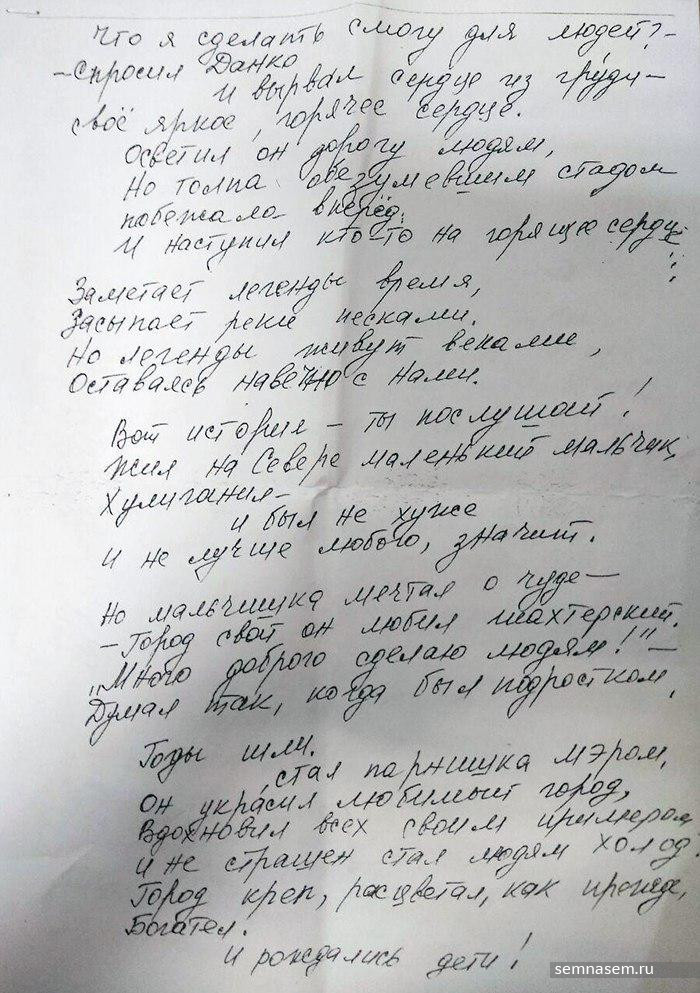 Что я сделать смогу для людей? -
- спросил Данко
И вырвал сердце из груди -
своё яркое, горячее сердце.
Осветил он дорогу людям,
Но толпа обезумевшим стадом
побежала вперёд.
И наступил кто-то на горящее сердце
Заметает легенды время,
Засыпает реки песками.
Но легенды живут веками,
Оставаясь навечно с нами.
Вот история - ты послушай!
Жил на Севере маленький мальчик,
Хулиганил -
и был не хуже
И не лучше любого, значит.
Но мальчишка мечтал о чуде -
- Город свой он любил шахтерский.
"Много доброго сделаю людям!" -
Думал так, когда был подростком,
Годы шли.
стал парнишка мэром,
Он украсил любимый город,
Вдохновил всех своим примером
и не страшен стал людям холод.
Город креп, расцветал, как прежде,
Богател.
И рождались дети!
semnasem.ru